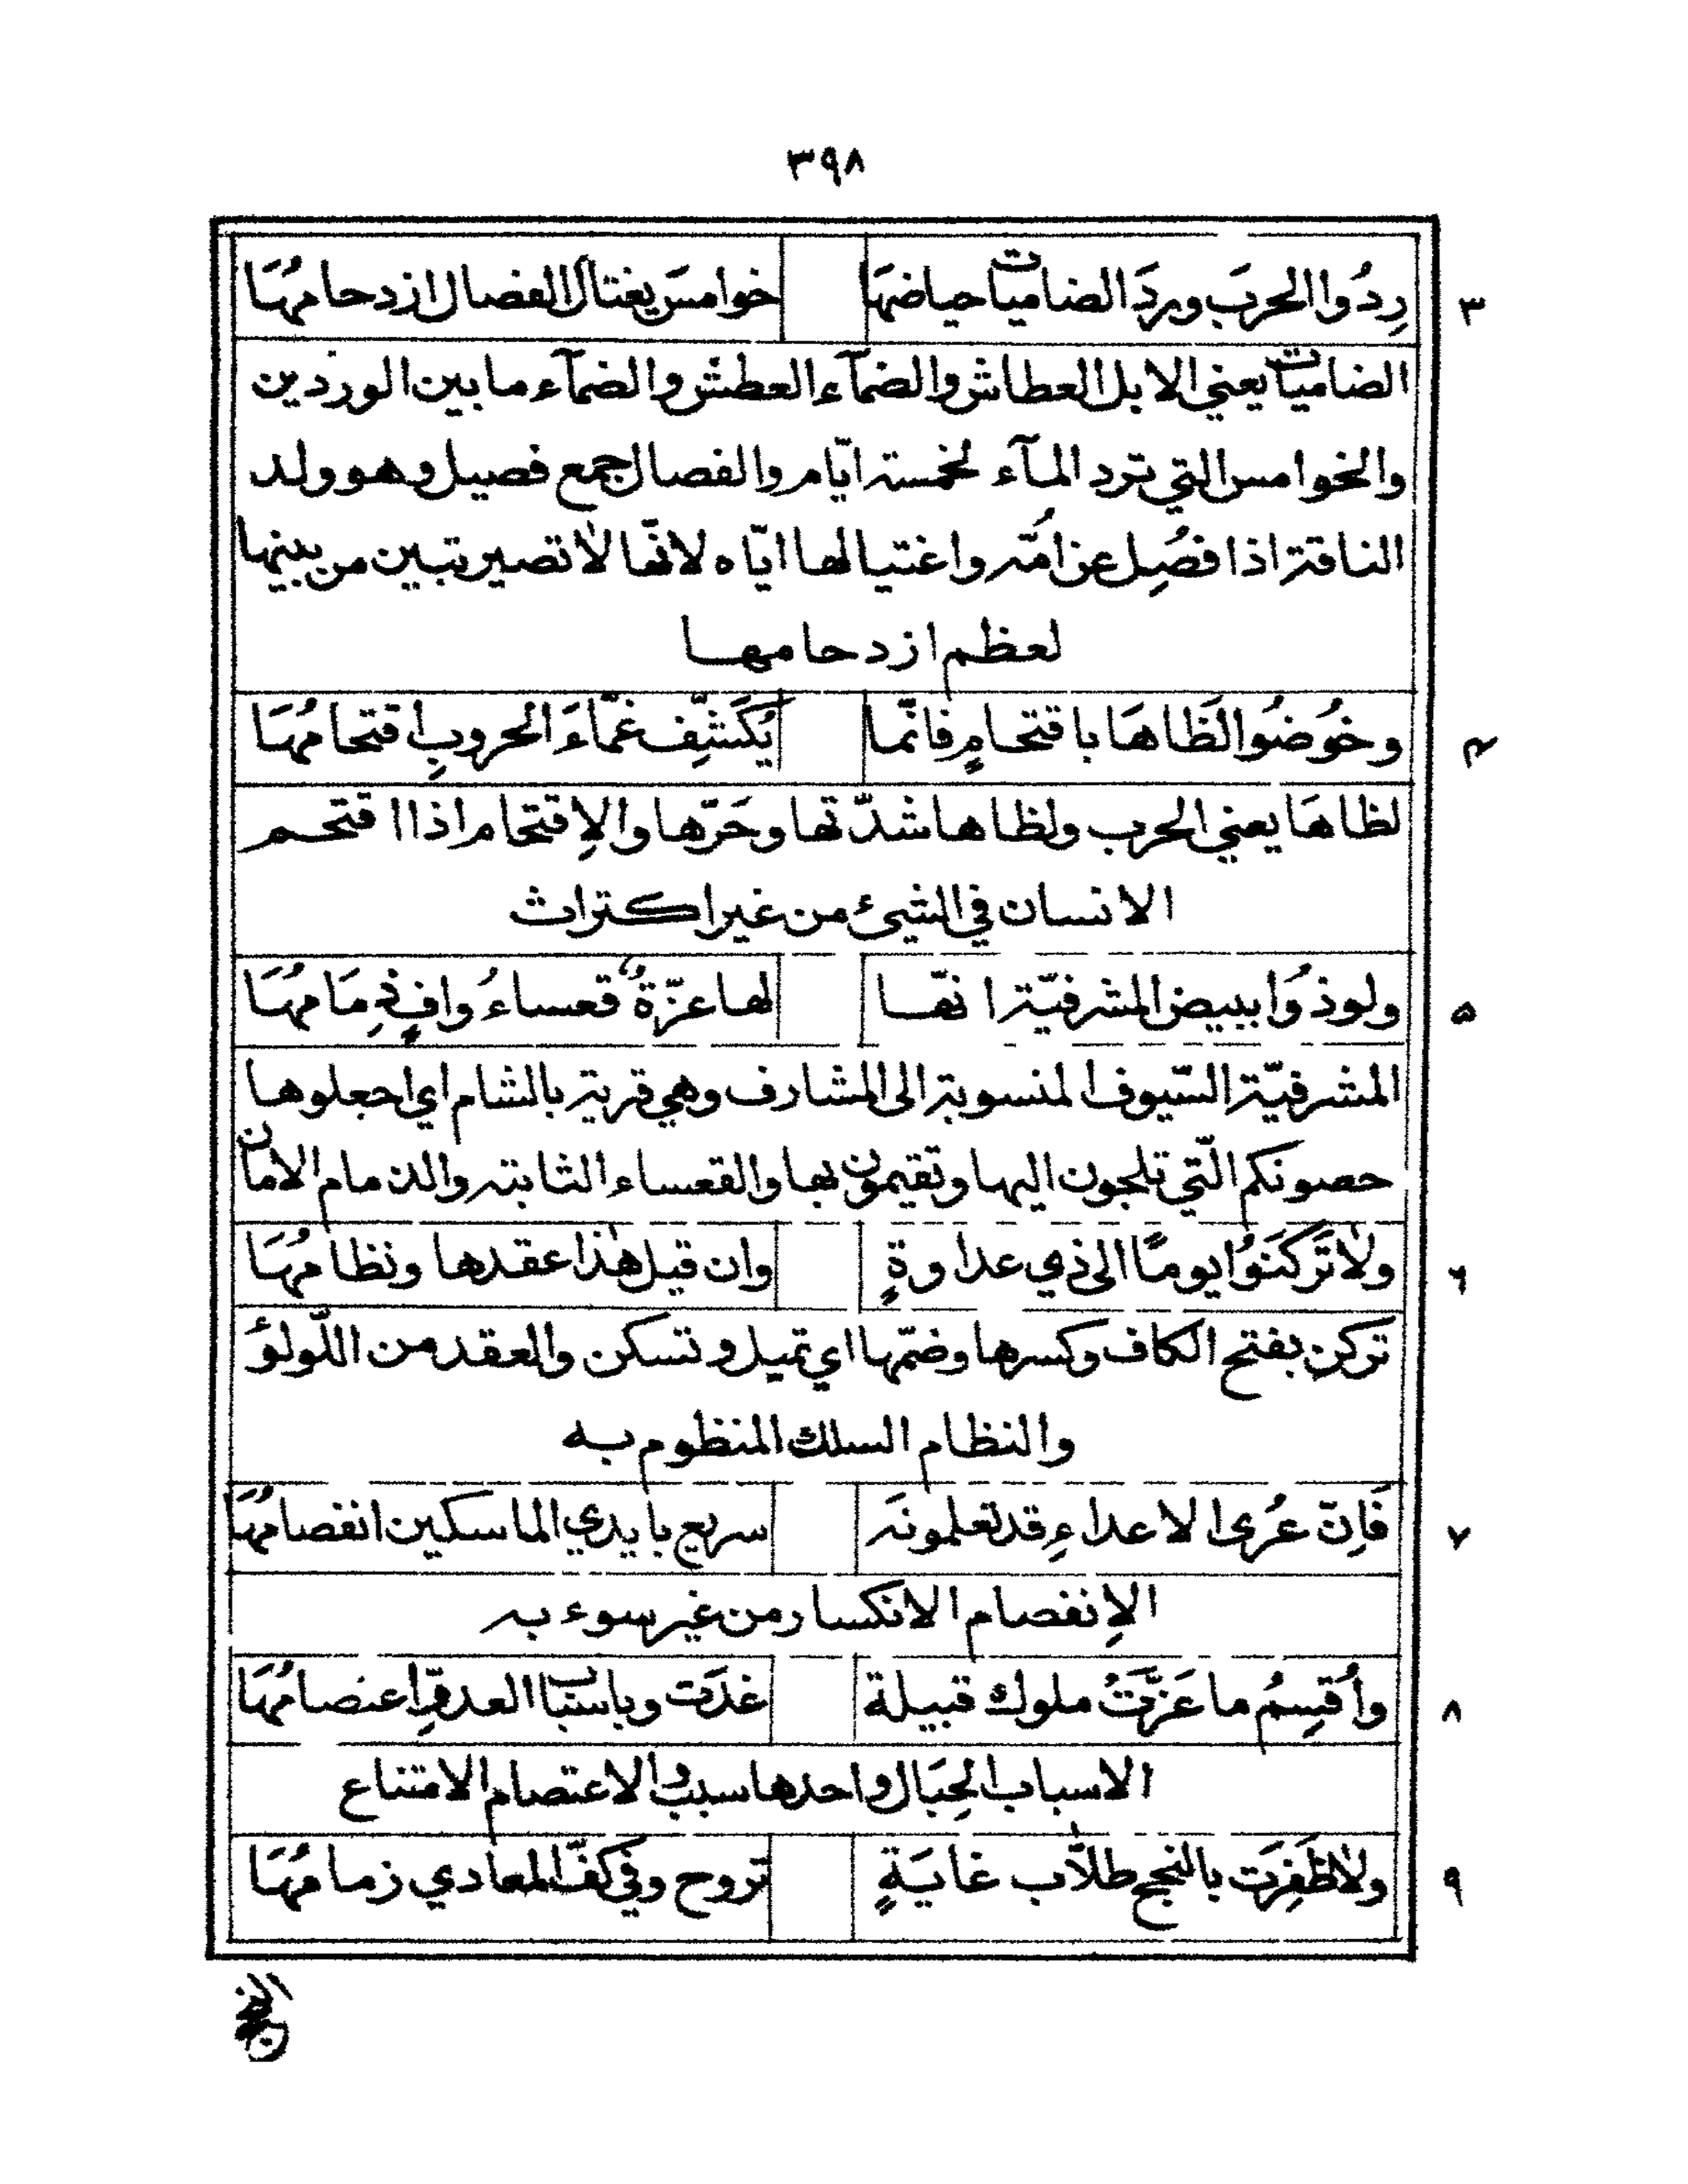 ٣٩٨
٣ رِدُوا الحربَ وِردَ الضاميات حياضهَا خوامسَ يغتال الفصال ازدحامهُا
الضاميات يعني الابل العطاش والضمآء العطش والضمآء ما بين الوردين
والخوامس التي ترد المآء لخمسة ايّام والفصال جمع فصيل وهو ولد
الناقة اذا فصُل عن امّه واغتيالها ايّاه لانّها لا تصير تبين من بينها
لعظم ازدحامها
٤ وخُوضُوا لَظَاهَا باقتحامٍ فانّما يُكَشِّف غمّاءَ الحروبِ اقتحامُهَا
لظاهَا يعني الحرب ولظاها شدّتها وحَرّها والاِقتحام اذا اقتحم
الانسان في الشيئ من غير اكتراث
٥ ولوذُوا ببيض المشرفيّة انّها لها عزّةٌ قعساءُ وافٍ ذِمَامُهَا
المشرفيّة السّيوف المنسوبة الى المشارف وهي قرية بالشام اي اجعلوها
حصونكم الّتي تلجون اليها وتقيمون بها والقعساء الثابتة والذمام الامان
٦ ولا تَركَنَوُا يومًا الى ذي عداوةٍ وان قيل هذا عقدها ونظامُهَا
تركن بفتح الكاف وكسرها وضمّها اي تميل وتسكن والعقد من اللّولؤ
والنظام السلك المنظوم به
٧ فَاِنّ عُرى الاعداءِ قد تعلمونَه سريع بايدي الماسكين انفصامُهَا
الاِنفصام الانكسار من غير سوء به
٨ واُقسِمُ ما عَزَّتُ ملوك قبيلة غدَت وباسباب العدوِّ اعتصامُهَا
الاسباب الحِبَال واحدها سبب والاعتصام الامتناع
٩ ولا ظَفِرَت بالنجح طلاّب غايَةٍ تروح وفي كفّ المعادي زمامُهَا